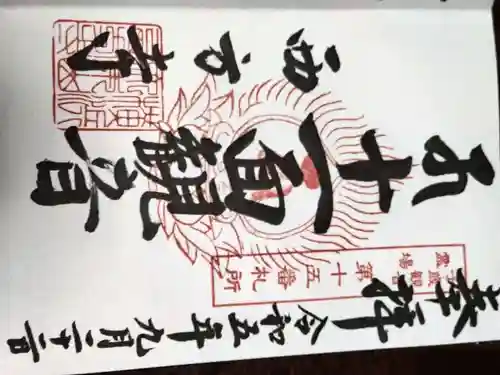 奉拝 令和五年九月二十二日
観音
霊場
第十五番札所
十一面観音
西方寺